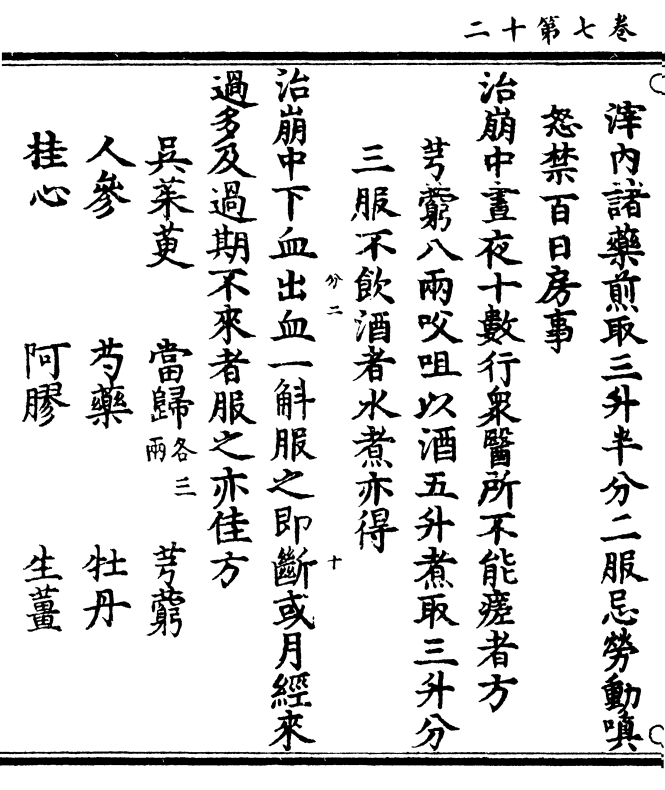 卷七第十二
滓内諸藥煎取三升半分二服忌勞動嗔
怒禁百日房事
治崩中晝夜十數行衆醫所不能瘥者方
芎藭八兩㕮咀以酒五升煮取三升分
三服不飲酒者水煮亦得
分二
十
治崩中下血出血一斛服之即斷或月經來
過多及過期不來者服之亦佳方
吳茱萸 當歸各三兩 芎藭
人參 芍藥 牡丹
桂心 阿膠 生薑